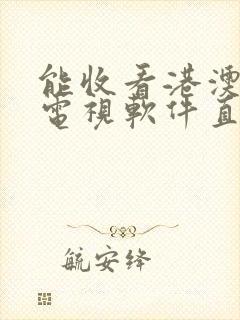 能收看港澳
電視軟件直
航安绛